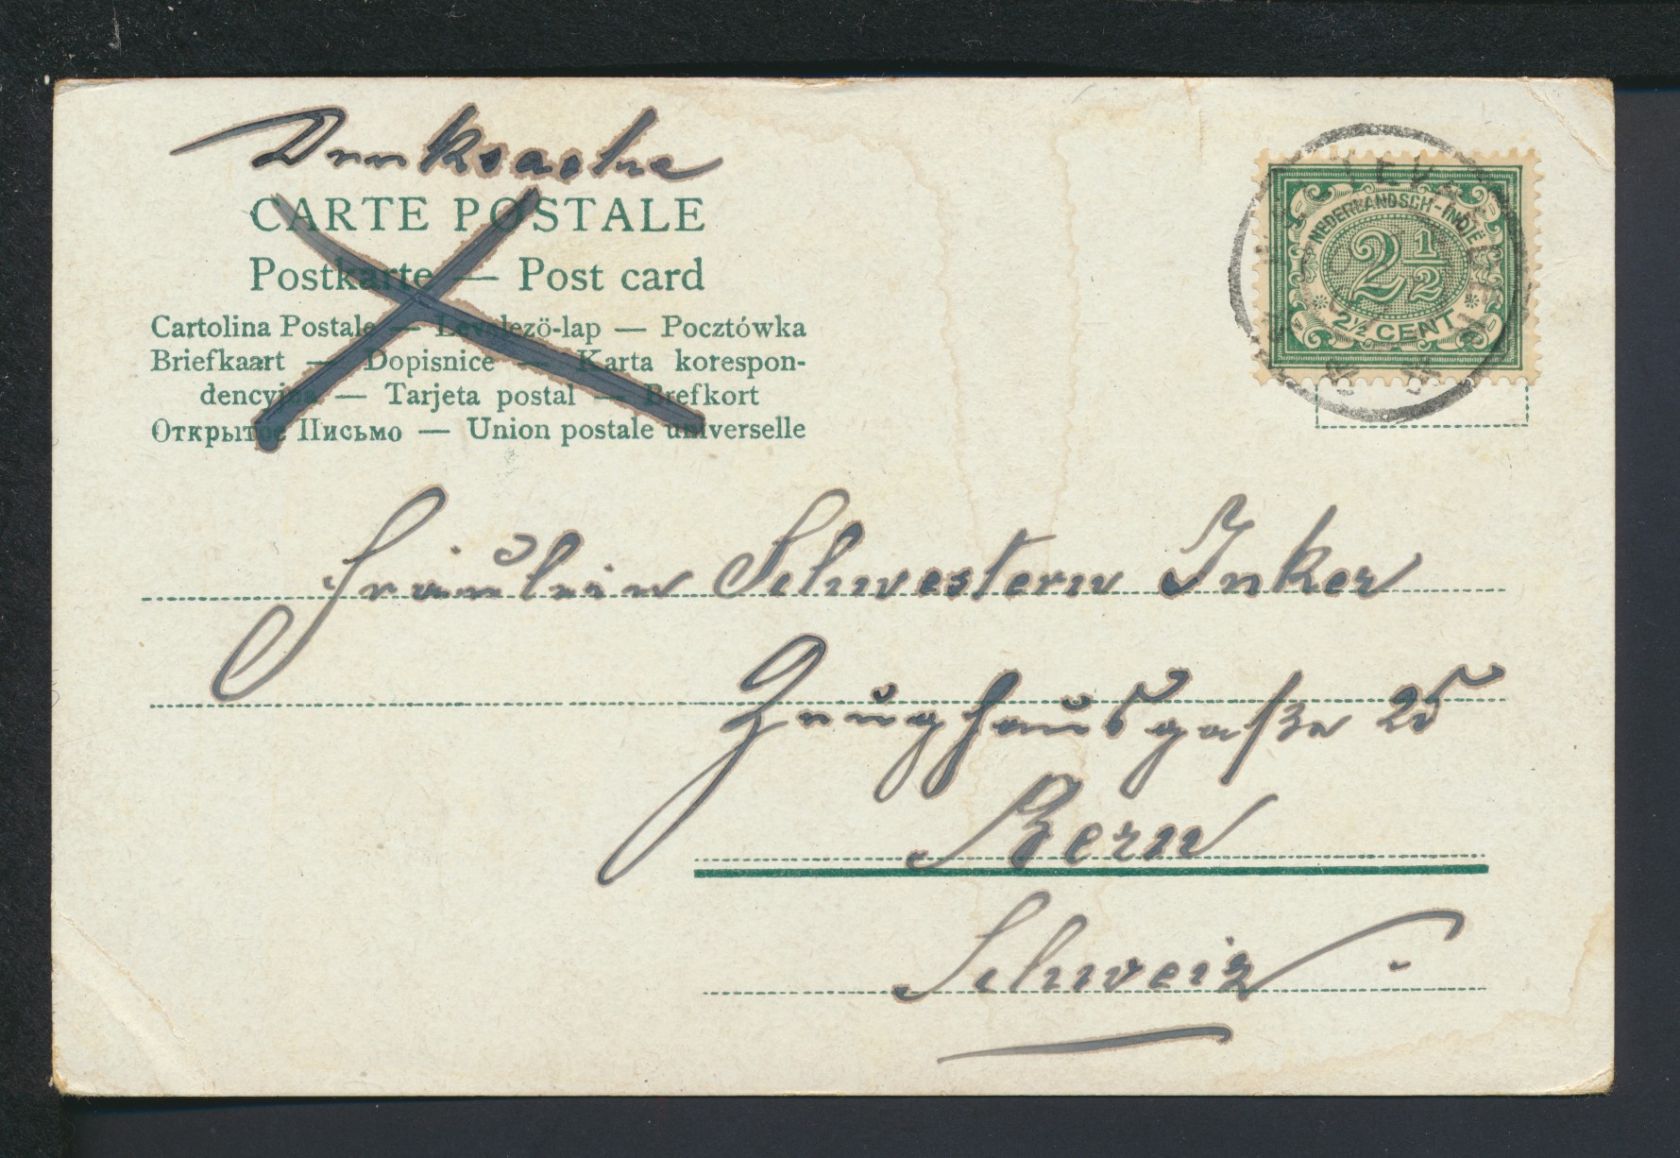 Drucksache
CARTE POSTALE
Postkarte — Post card
Cartolina Postale — Levelezö-lap — Pocztówka
Briefkaart — Dopisnice — Karta korespon-
dencyjna — Tarjeta postal — Brefkort
Открытое Письмо — Union postale universelle
NEDERLANDSCH-INDIË
2½
2½ CENT
Fräulein Schwestern Inker
Zeughausgasse 25
Bern
Schweiz